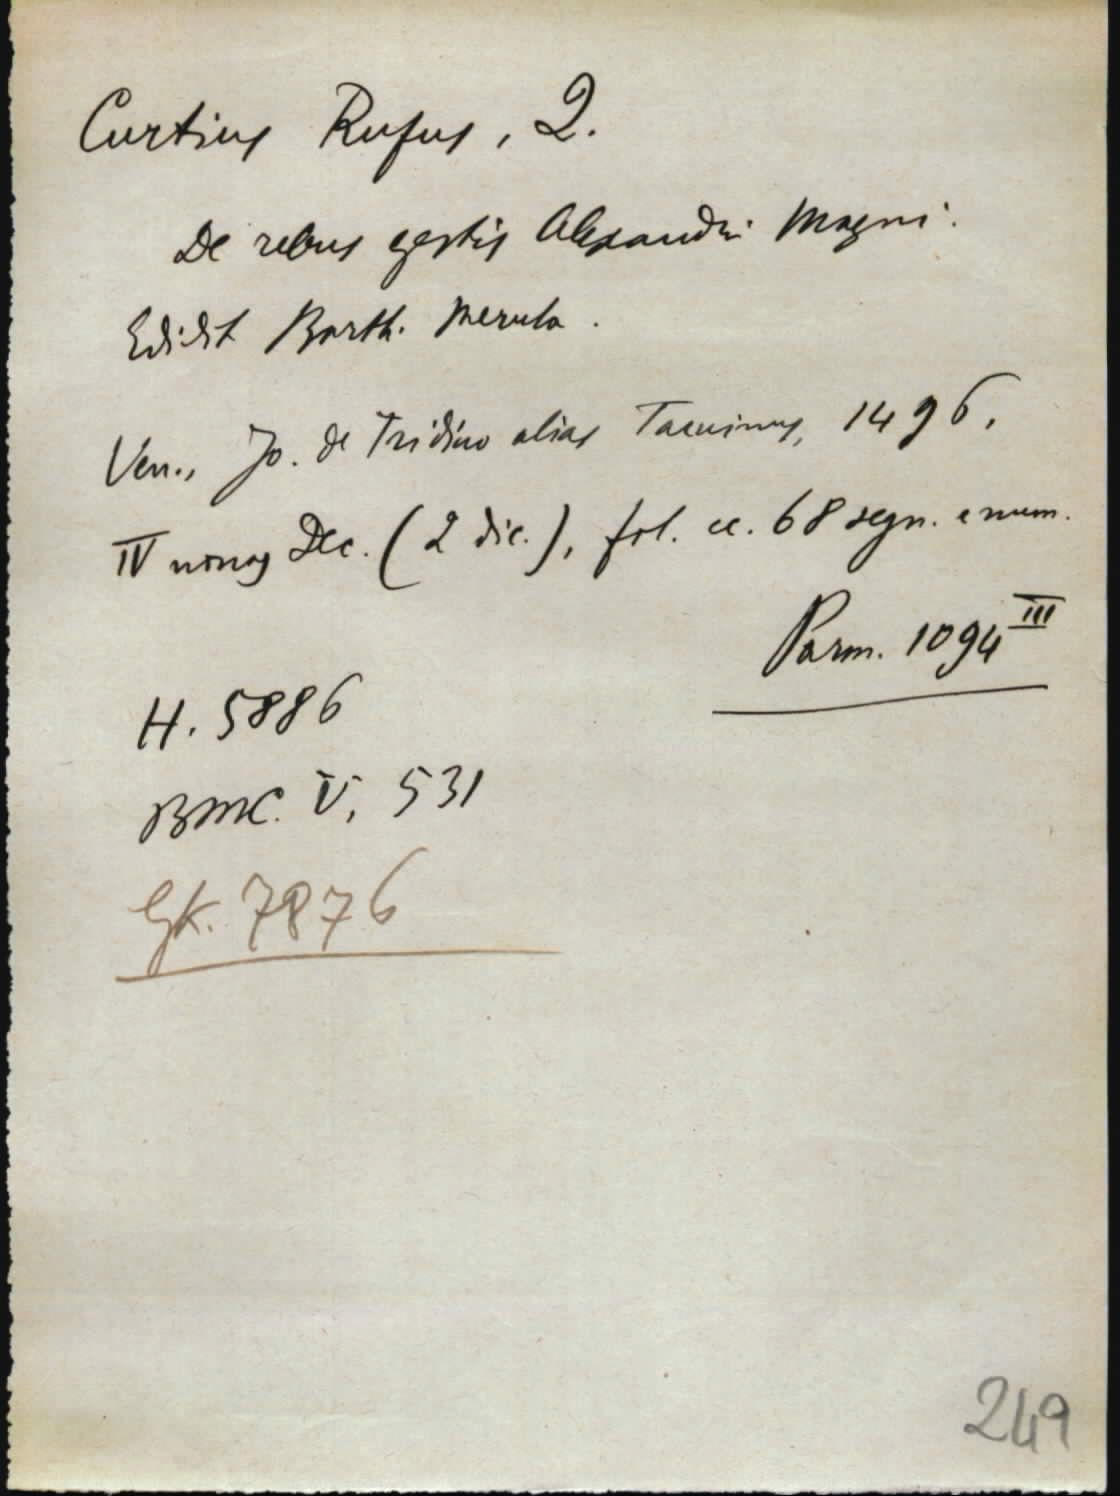 Curtius Rufus, Q.
De rebus gestis Alexandri Magni.
Edidit Barth. Merula.
Ven., Jo. de Tridino alias Tacuinus, 1496,
IV nonas Dec. (2 dic.), fol. cc. 68 segn. e num.
Parm. 1094 III
H. 5886
BMC. V, 531
GK. 7876
249